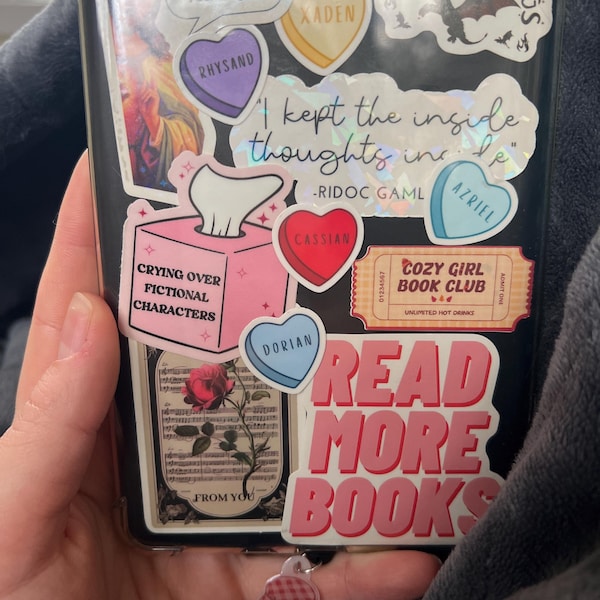 XADEN
RHYSAND
"I kept the inside
thoughts
-RIDOC
AZRIEL
CASSIAN
CRYING OVER
FICTIONAL
CHARACTERS
01234567
COZY GIRL
BOOK CLUB
UNLIMITED HOT DRINKS
ADMIT ONE
DORIAN
READ
MORE
BOOKS
FROM YOU